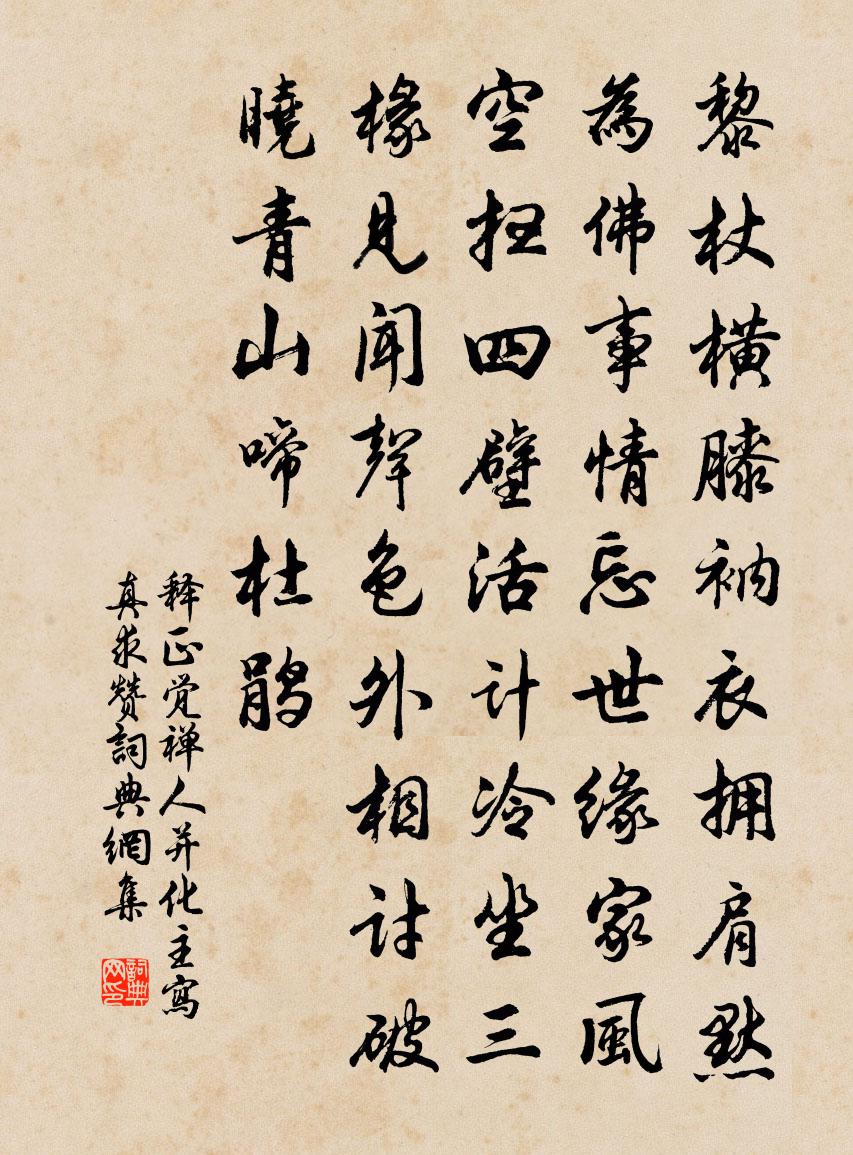 黎杖橫膝衲衣拥肩默
為佛事情忘世缘家風
空扫四壁活计冷坐三
椽見闻聲色外相討破
曉青山啼杜鹃
释正觉禅人并化主寫
真求赞詞典網集
詞典网印